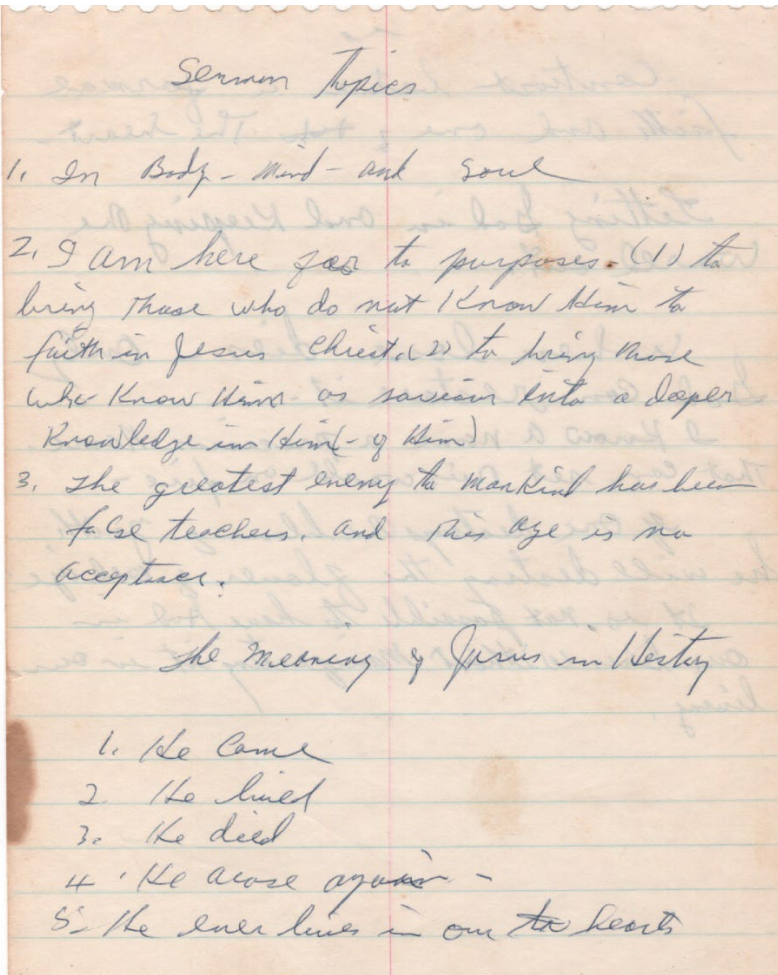 Sermon Topics
1. In Body - Mind - and Soul
2. I am here for to purposes. (1) to
bring those who do not Know Him to
faith in Jesus Christ. (2) to bring those
who Know Him as saviour into a deeper
Knowledge in Him (- of Him)
3. The greatest enemy to mankind has been
false teachers. And this age is no
acceptance.
The Meaning of Jesus in History
1. He Came
2. He lived
3. He died
4. He arose again -
5. He ever lives in our hearts